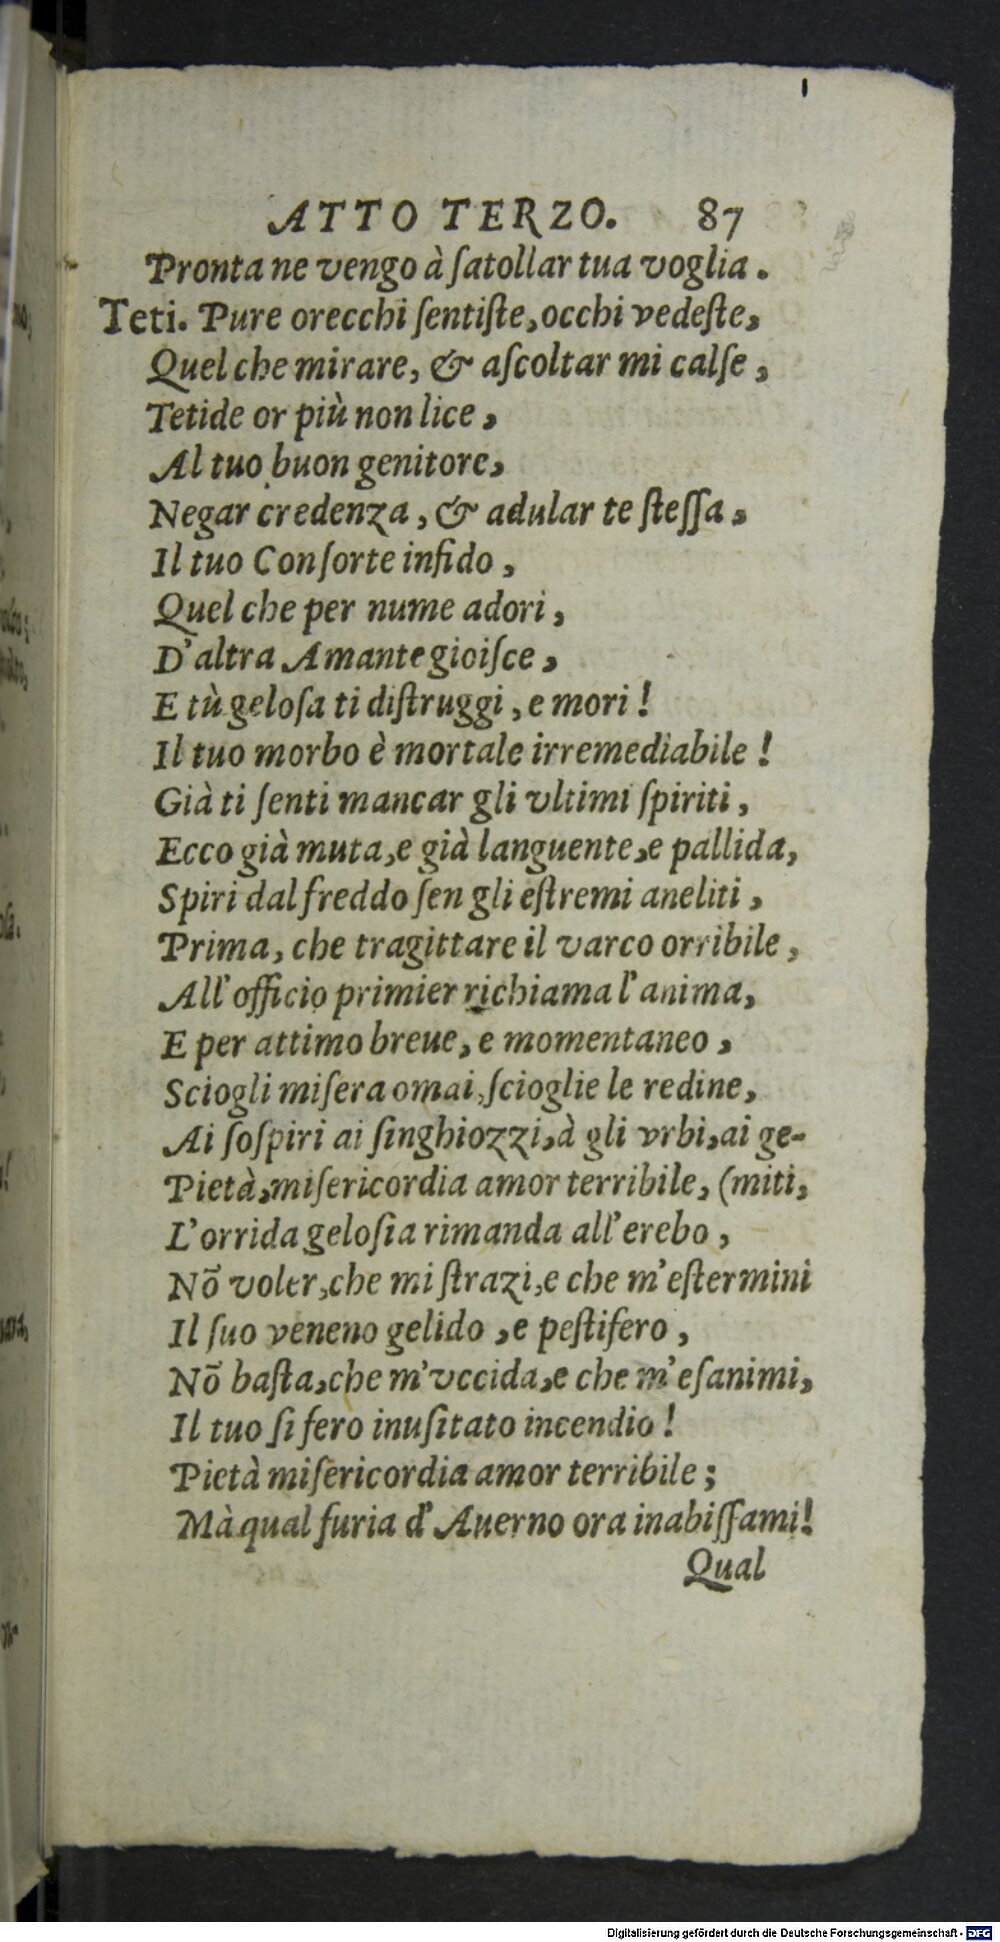 ATTO TERZO. 87
Pronta ne vengo à ſatollar tua voglia.
Teti. Pure orecchi ſentiſte, occhi vedeſte,
Quel che mirare, & aſcoltar mi calſe,
Tetide or più non lice,
Al tuo buon genitore,
Negar credenza, & adular te ſteſſa,
Il tuo Conſorte infido,
Quel che per nume adori,
D'altra Amante gioiſce,
E tù geloſa ti diſtruggi, e mori!
Il tuo morbo è mortale irremediabile!
Già ti ſenti mancar gli vltimi ſpiriti,
Ecco già muta, e già languente, e pallida,
Spiri dal freddo ſen gli eſtremi aneliti,
Prima, che tragittare il varco orribile,
All'officio primier richiama l'anima,
E per attimo breue, e momentaneo,
Sciogli miſera omai, ſcioglie le redine,
Ai ſoſpiri ai ſinghiozzi, à gli vrbi, ai ge-
Pietà, miſericordia amor terribile, (miti,
L'orrida geloſia rimanda all'erebo,
Nō voler, che mi ſtrazi, e che m'eſtermini
Il ſuo veneno gelido, e peſtifero,
Nō baſta, che m'vccida, e che m'eſanimi,
Il tuo ſi fero inuſitato incendio!
Pietà miſericordia amor terribile;
Mà qual furia d'Auerno ora inabiſſami!
Qual
Digitalisierung gefördert durch die Deutsche Forschungsgemeinschaft - DFG